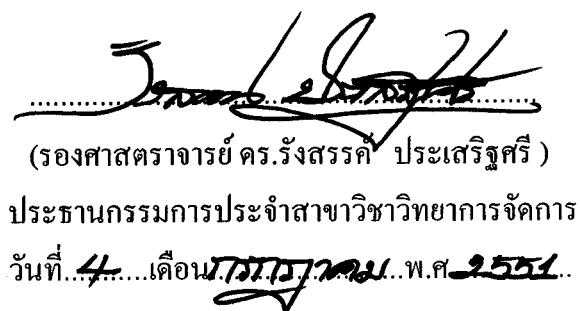 (รองศาสตราจารย์ ดร.รังสรรค์ ประเสริฐศรี )
ประธานกรรมการประจำสาขาวิชาวิทยาการจัดการ
วันที่..4.......เดือน กรกฎาคม....พ.ศ 2551..